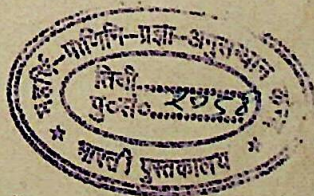 महर्षि-पाणिनि-प्रज्ञा-अनुसन्धान
तिथी
पु०सं० २०५४
* भारती पुस्तकालय *